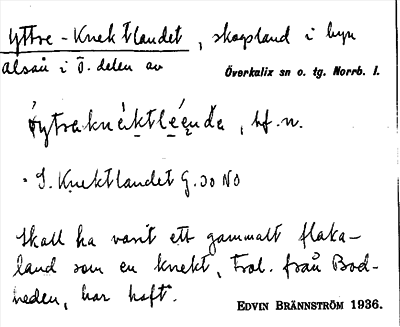 Yttre-Knektlandet, skogsland i byn
alsån i ö. delen av
Överkalix sn o. tg. Norrb. l.
, bf. n.
S. Knektlandet G. 30 NO
Skall ha varit ett gammalt flaka-
land som en knekt, trol. från Bod-
heden, har haft.
EDVIN BRÄNNSTRÖM 1936.